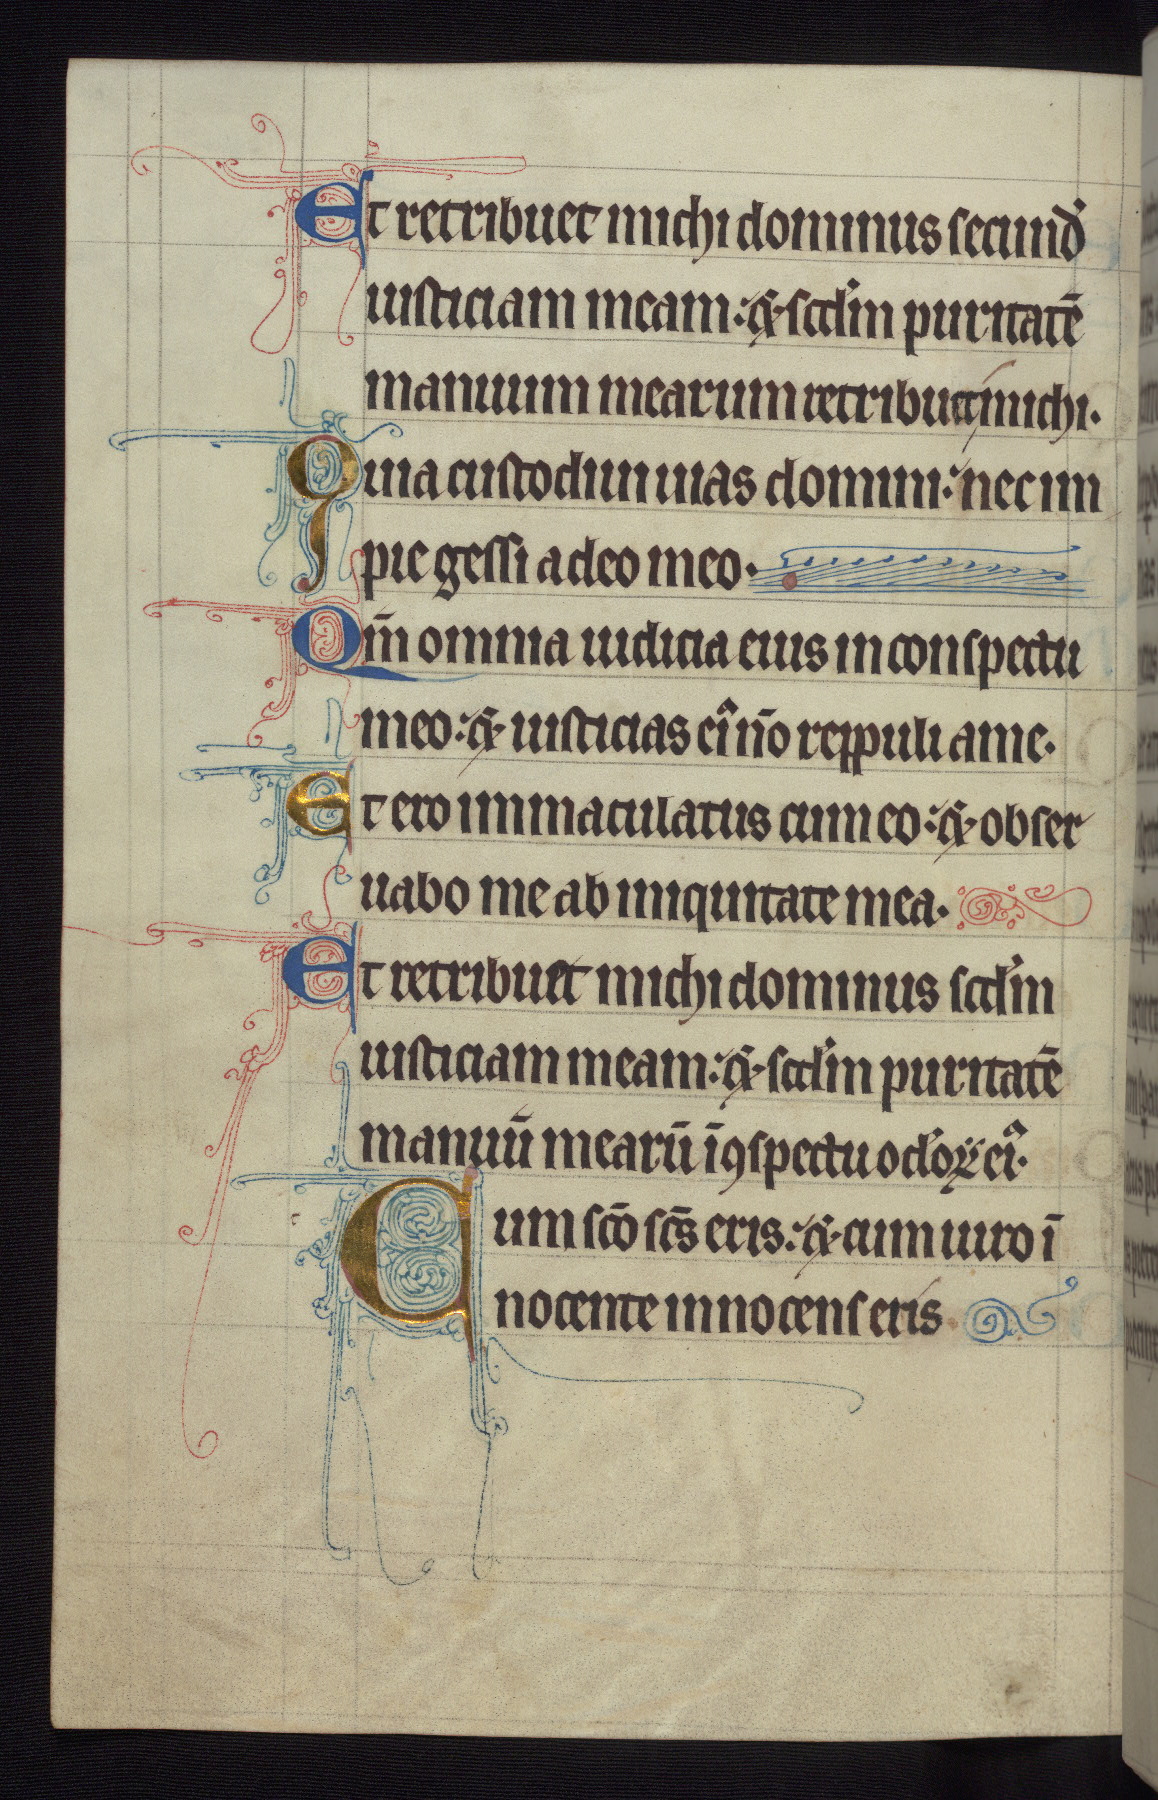 Et retribuet michi dominus secund᷑
iusticiam meam: ⁊ scd̄m puritatē
manuum mearum retribuet michi.
Quia custodiui uias domini: nec im
pie gessi a deo meo.
Qm̄ omnia iudicia eius in conspectu
meo: ⁊ iusticias ei᷑ nō reppuli a me.
Et ero immaculatus cum eo: ⁊ obser
uabo me ab iniquitate mea.
Et retribuet michi dominus scd̄m
iusticiam meam: ⁊ scd̄m puritatē
manuū mearū ī ꝯspectu oc̄loꝝ ei᷑.
Cum scō scs̄ eris: ⁊ cum uiro ī
nocente innocens eris